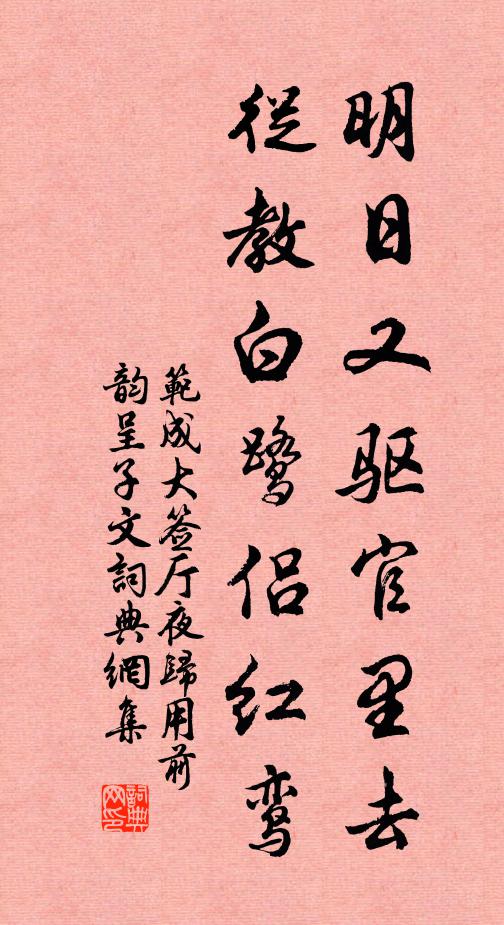 明日又驱官里去
從教白鹭侣红鸾
範成大签厅夜歸用前
韵呈子文詞典網集
詞典網印